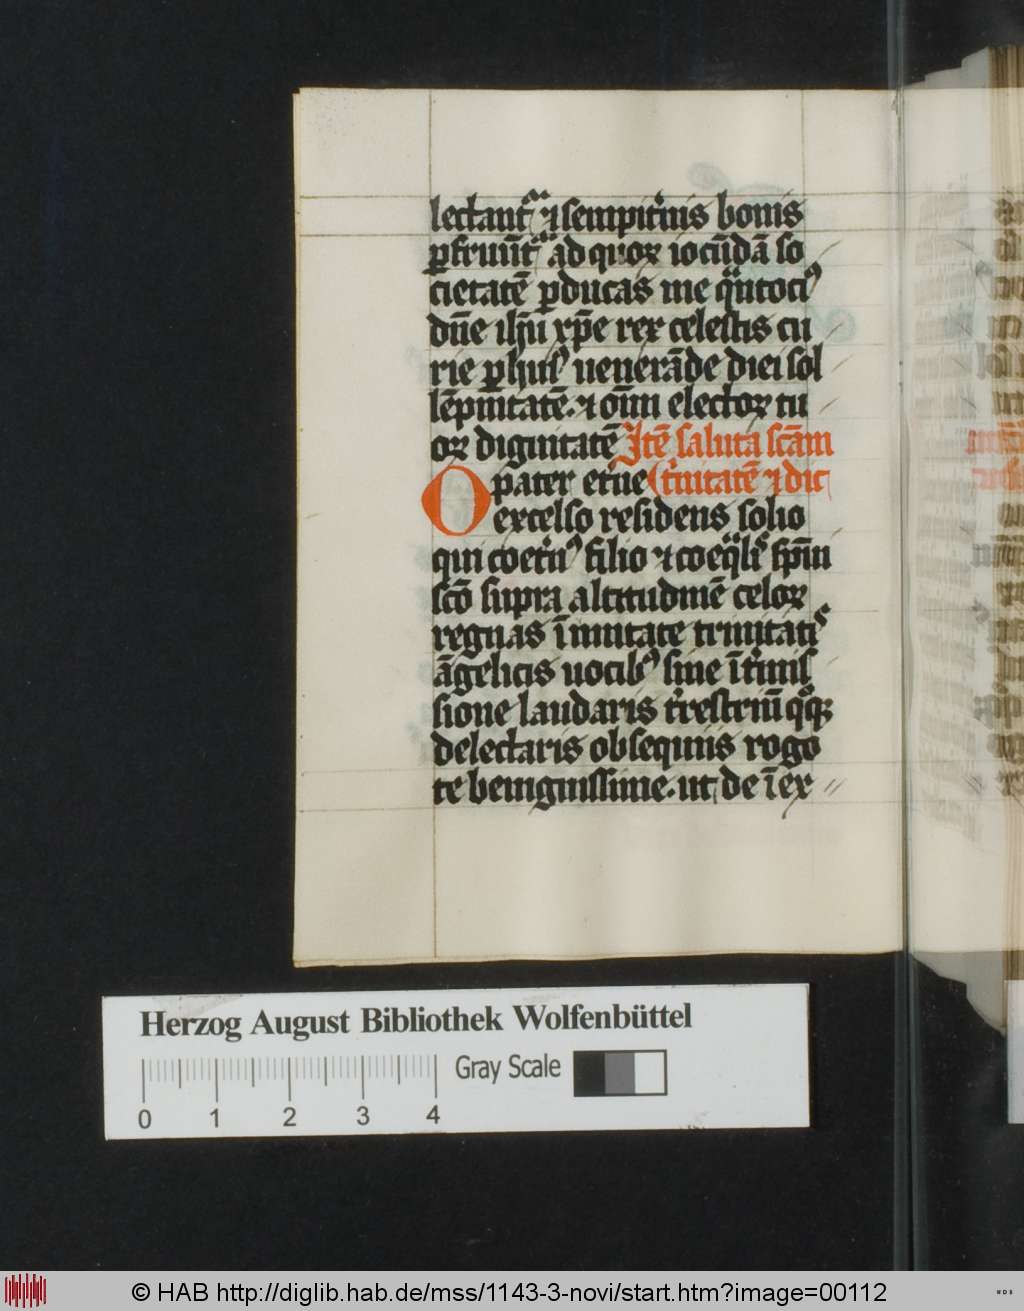 lectant᷑ ⁊ sempit̾nis bonis
ꝑfruūt᷑ ad quoꝝ iocūdā so
cietatē ꝑducas me qͣntociꝰ
dn̄e ih̄u xp̄e rex celestis cu
rie ꝑ huiꝰ uenerāde diei sol
lēpnitatē. ⁊ oīm electoꝝ tu
oꝝ dignitatē Itē saluta scām
O pater et̾ne t̾nitatē ⁊ dic
excelso residens solio
qui coet̾nꝰ filio ⁊ coeqͣlis sp̄ui
sc̄o supra altitudinē celoꝝ
regnas ī unitate trinitatis
āgelicis uocibꝰ sine īt̾mis
sione laudaris t̾restriū qͦꝫ
delectaris obsequiis rogo
te benignissime. ut de ī ex
Herzog August Bibliothek Wolfenbüttel
Gray Scale
0 1 2 3 4
© HAB http://diglib.hab.de/mss/1143-3-novi/start.htm?image=00112